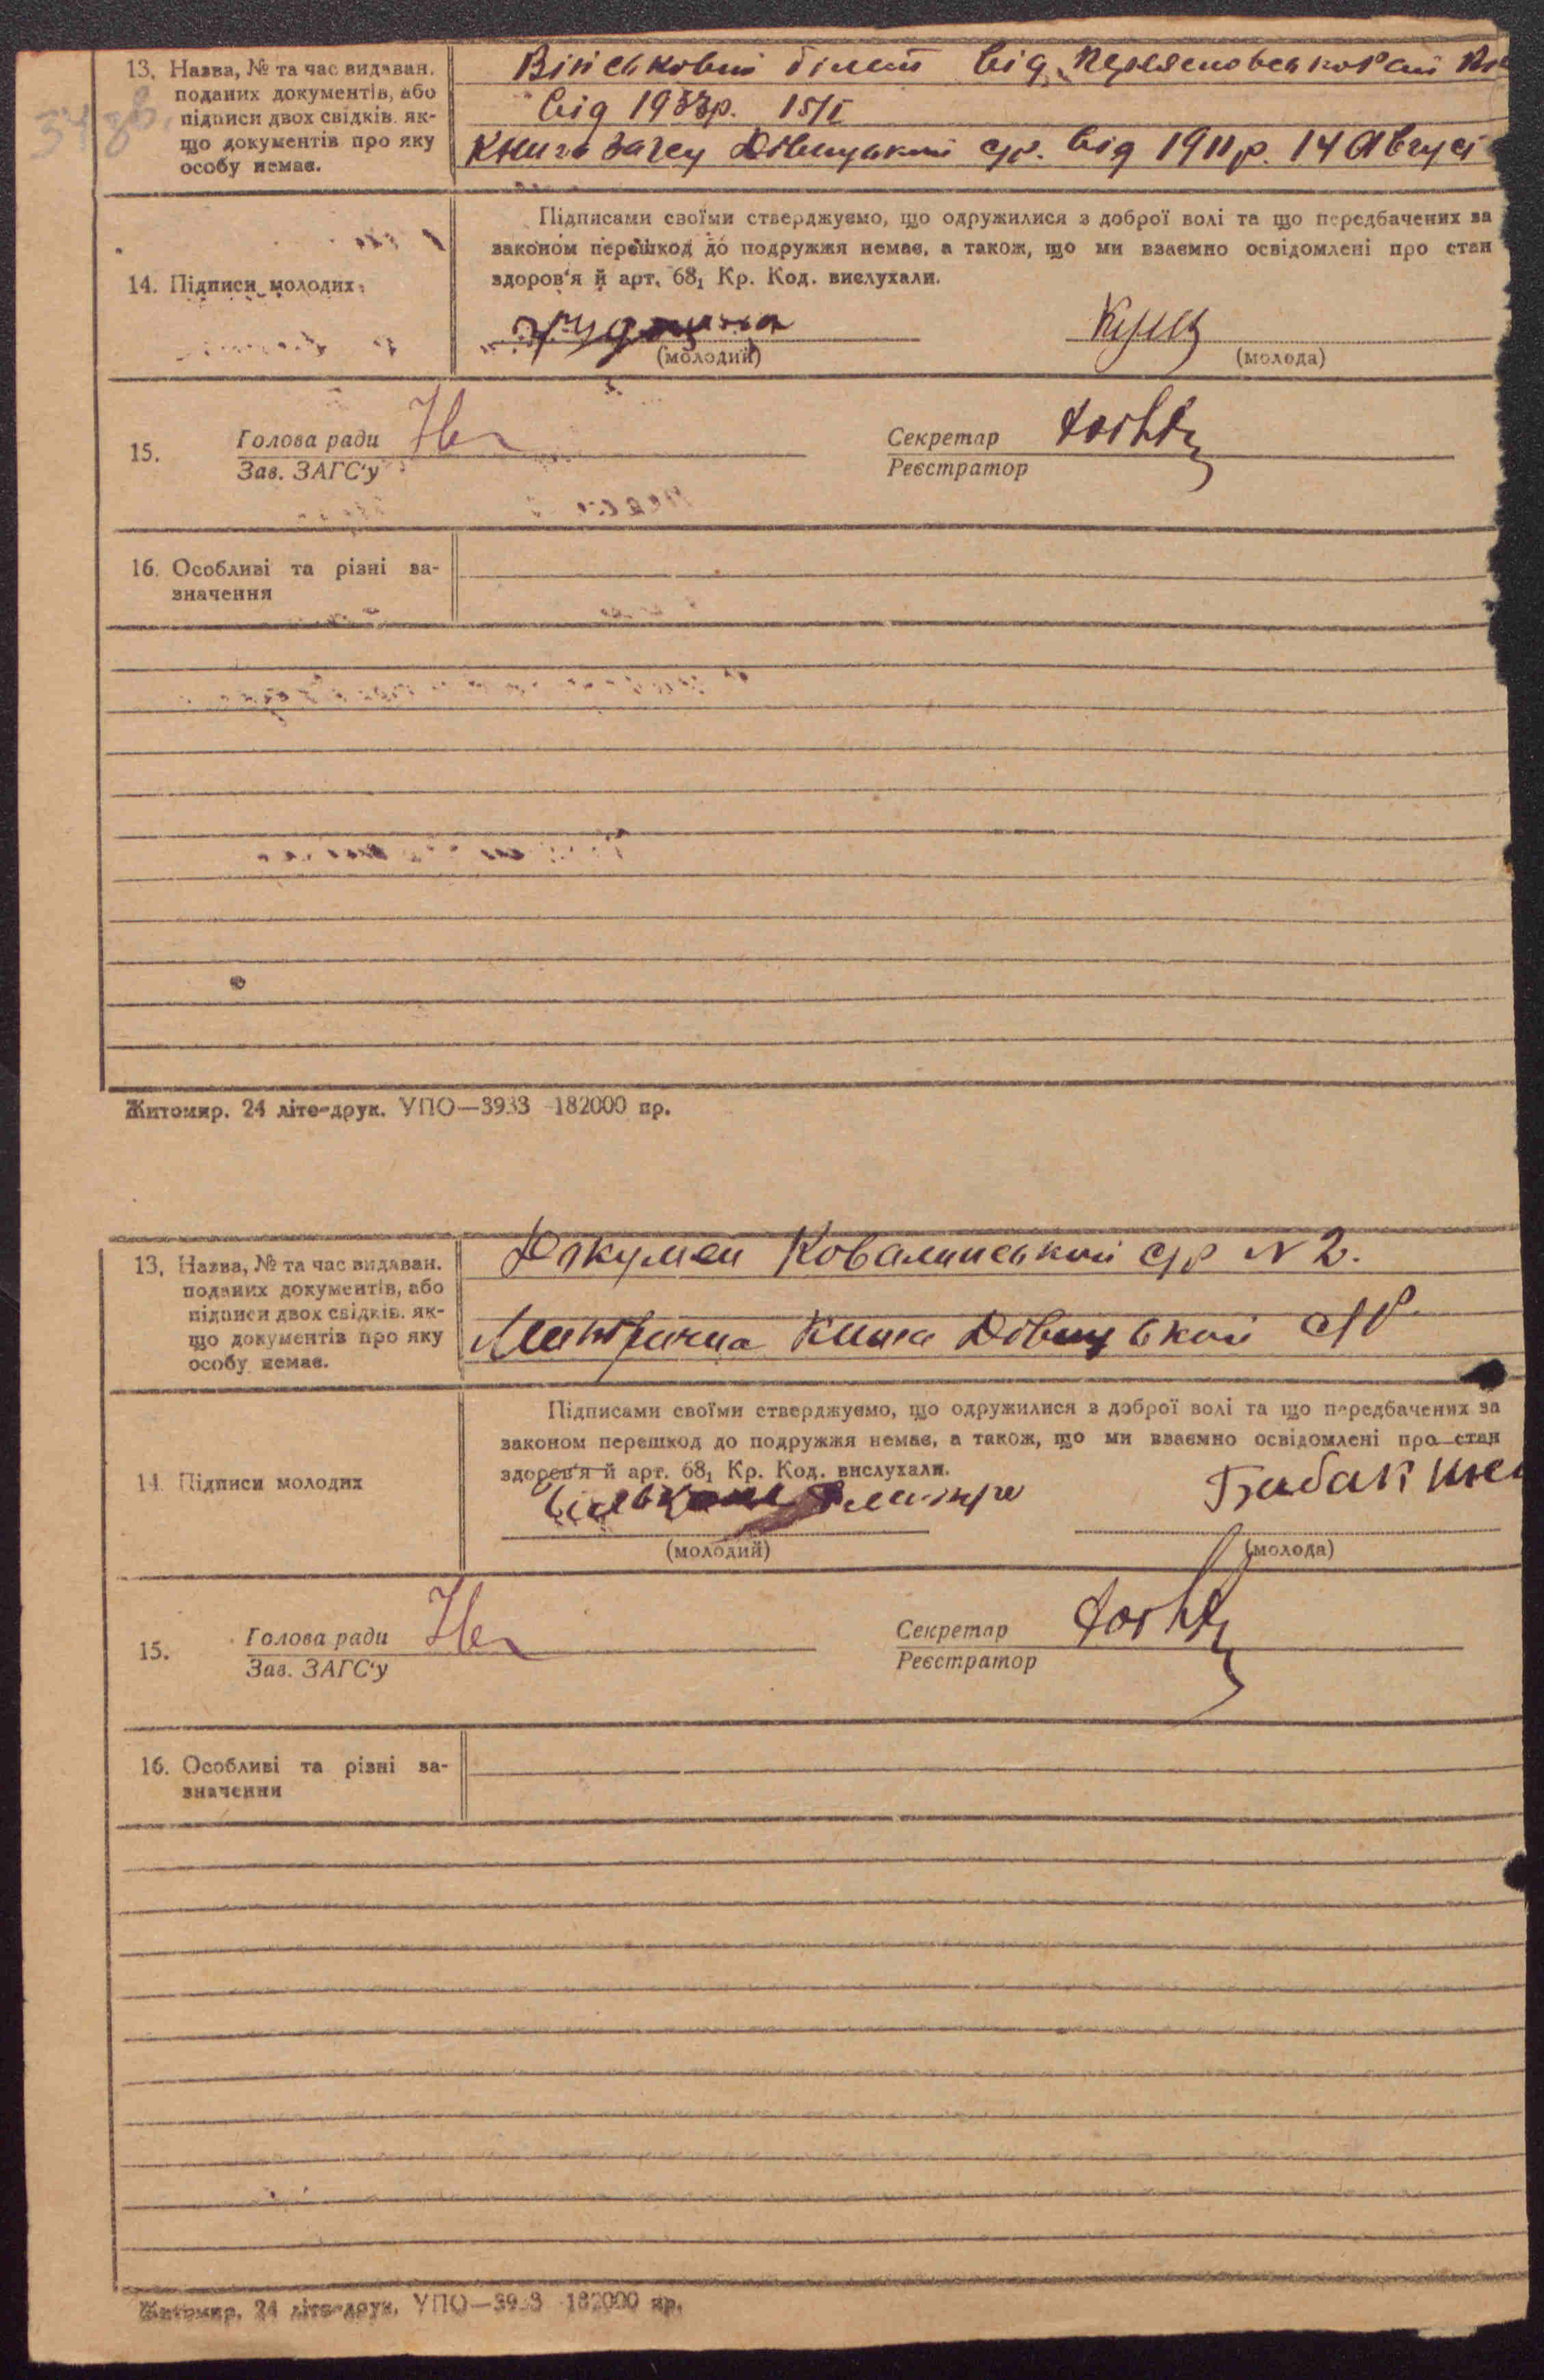 13. Назва, № та час видаван.
поданих документів, або
підписи двох свідків, як-
що документів про яку
особу немає.
Військовий білет від
від 1933р. 15/I
Книга Загсу Дівицької с/р. від 1911 р. 14 Август
14. Підписи молодих
Підписами своїми стверджуємо, що одружилися з доброї волі та що передбачених за
законом перешкод до подружжя немає, а також, що ми взаємно освідомлені про стан
здоров'я й арт. 68₁ Кр. Код. вислухали.
(молодий)
(молода)
15.
Голова ради
Зав. ЗАГС'у
Секретар
Реєстратор
16. Особливі та різні за-
значення
Житомир. 24 літо-друк. УПО—3933 182000 пр.
13. Назва, № та час видаван.
поданих документів, або
підписи двох свідків, як-
що документів про яку
особу немає.
Докумен Ковалинської с/р N 2.
Метрична Книга Дівицької с/р.
14. Підписи молодих
Підписами своїми стверджуємо, що одружилися з доброї волі та що передбачених за
законом перешкод до подружжя немає, а також, що ми взаємно освідомлені про стан
здоров'я й арт. 68₁ Кр. Код. вислухали.
Бабак
(молодий)
(молода)
15.
Голова ради
Зав. ЗАГС'у
Секретар
Реєстратор
16. Особливі та різні за-
значення
Житомир. 24 літо-друк. УПО—3933 182000 пр.